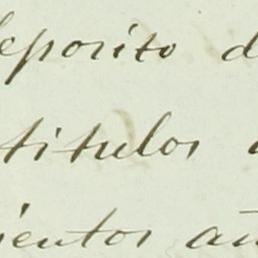 deposito d
titulos
ientos añ